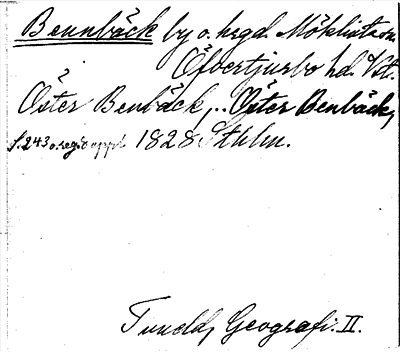 Bennbäck by o. hrgd. Möklintasn.
Öfvertjurbo hd. Vstl.
Öster Benbäck, .. Öster Benbäck,
s. 243 o. reg. o. appl. 1828 Sthlm.
Tuneld, Geografi. II.